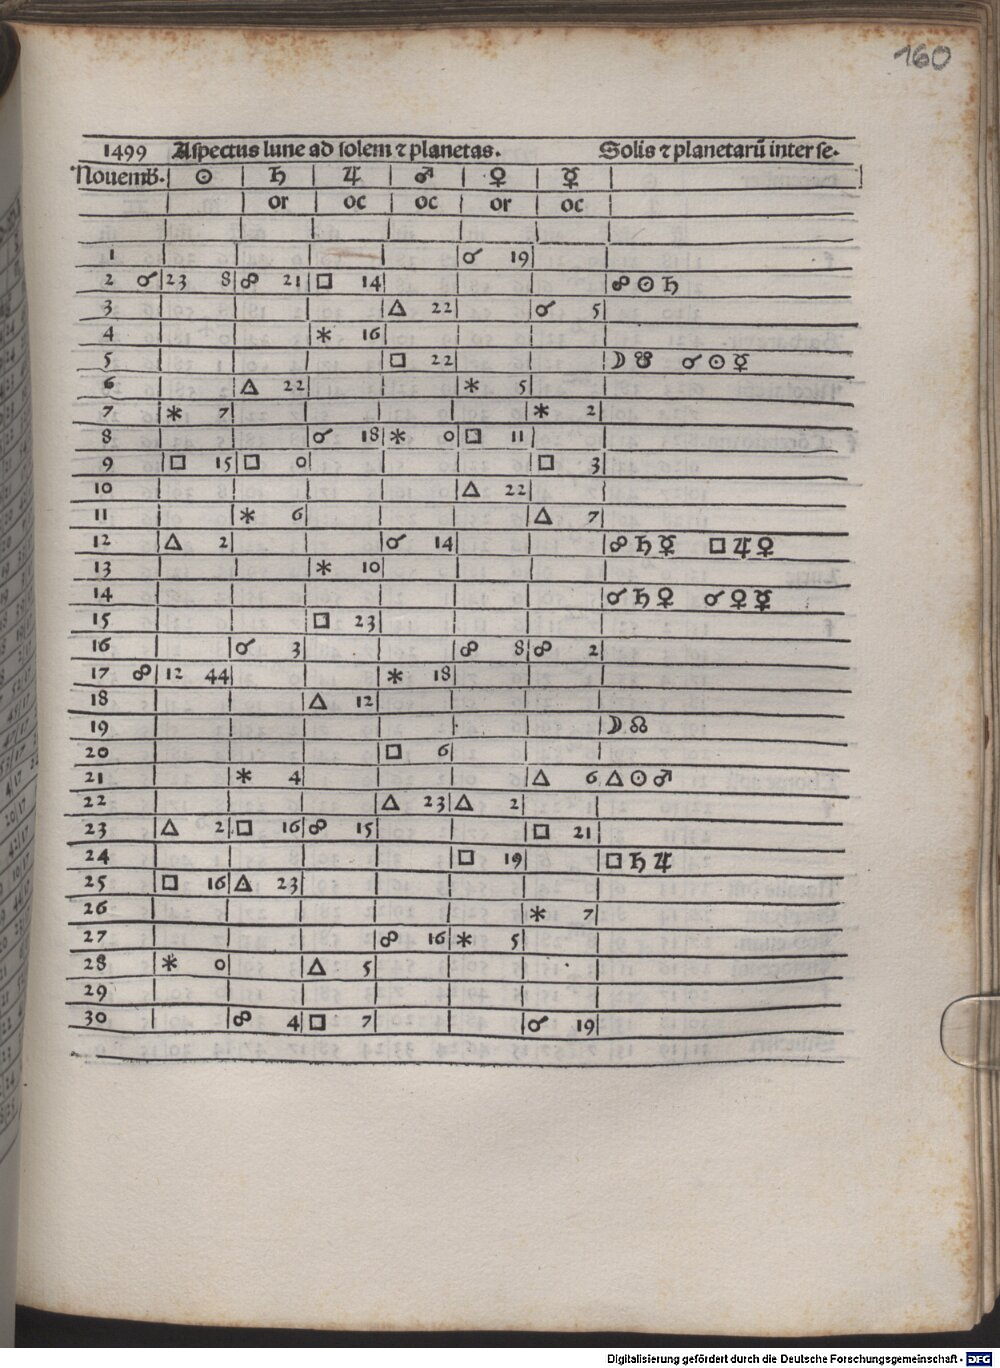 160
1499 Aspectus lune ad solem ⁊ planetas. Solis ⁊ planetarū inter se.
Nouemb. ☉ ♄ ♃ ♂ ♀ ☿
or oc oc or oc
1 ☌ 19
2 ☌ 23 8 ☍ 21 □ 14 ☍ ☉ ♄
3 △ 22 ☌ 5
4 ⚹ 16
5 □ 22 ☽ ☋ ☌ ☉ ☿
6 △ 22 ⚹ 5
7 ⚹ 7 ⚹ 2
8 ☌ 18 ⚹ 0 □ 11
9 □ 15 □ 0 □ 3
10 △ 22
11 ⚹ 6 △ 7
12 △ 2 ☌ 14 ☍ ♄ ☿ □ ♃ ♀
13 ⚹ 10
14 ☌ ♄ ♀ ☌ ♀ ☿
15 □ 23
16 ☌ 3 ☍ 8 ☍ 2
17 ☍ 12 44 ⚹ 18
18 △ 12
19 ☽ ☊
20 □ 6
21 ⚹ 4 △ 6 △ ☉ ♂
22 △ 23 △ 2
23 △ 2 □ 16 ☍ 15 □ 21
24 □ 19 □ ♄ ♃
25 □ 16 △ 23
26 ⚹ 7
27 ☍ 16 ⚹ 5
28 ⚹ 0 △ 5
29
30 ☍ 4 □ 7 ☌ 19
Digitalisierung gefördert durch die Deutsche Forschungsgemeinschaft - DFG